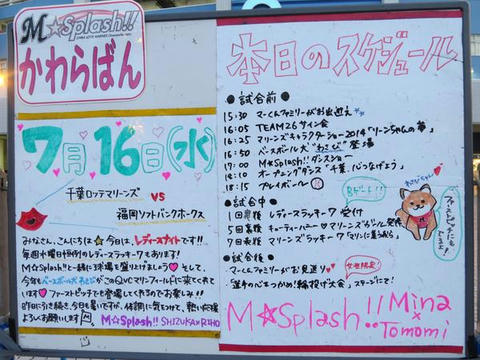 M☆Splash!!
かわらばん
7月16日(水)
千葉ロッテマリーンズ
VS
福岡ソフトバンクホークス
みなさん、こんにちは☆今日は、レディースナイトです!!
毎週水曜日恒例のレディースラッキー7もあります!
M☆Splash!!と一緒に球場を盛り上げましょう♡そして、
今年もベースボール犬わさびがこのQVCマリンフィールドに来てくれて
います♡ファーストピッチでも登場してくれるのでお楽しみに!!
前日に引き続き、今日も暑いですが、体調に気をつけて、熱い応援
よろしくお願いします
M☆Splash!! SHIZUKA×RIHO
本日のスケジュール
●試合前
15:30 マーくんファミリーがお出迎え
16:05 TEAM26サイン会
16:25 マリーンズキャラクターショー2014「リーンちゃんの夢」
16:50 ベースボール犬"わさび"登場
17:00 M☆Splash!!ダンスショー
18:10 オープニングダンス「千葉、心つなげよう」
18:15 プレイボール
●試合中
1回裏後 レディースラッキー7 受付
5回裏後 キューティーハニー♡マリーンズガール発表
7回表後 マリーンズラッキー7「マリンに集う我ら」
●試合後
マーくんファミリーがお見送り♡
女性限定!
「選手の心をつかめ!輪投げ大会」ステージにて!
わさびちゃん
ファーストピッチにも
M☆Splash!!
Mina
×
Tomomi